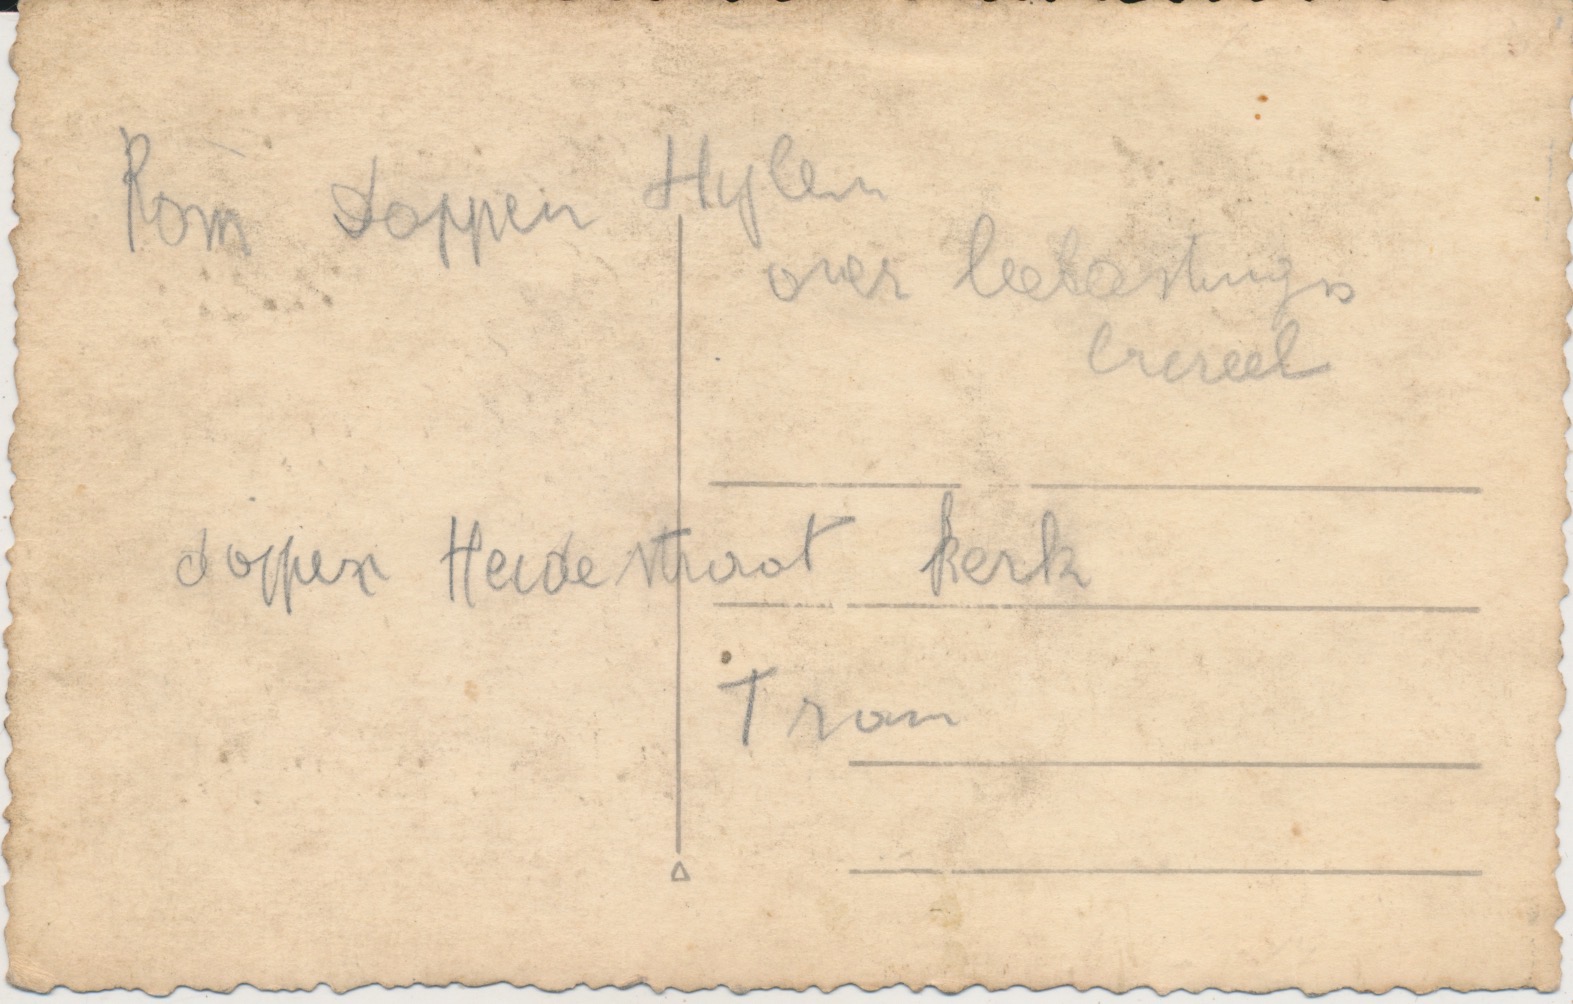 Rom doppen Hylen
over belastings
doppen Heidestraat kerk
Tram